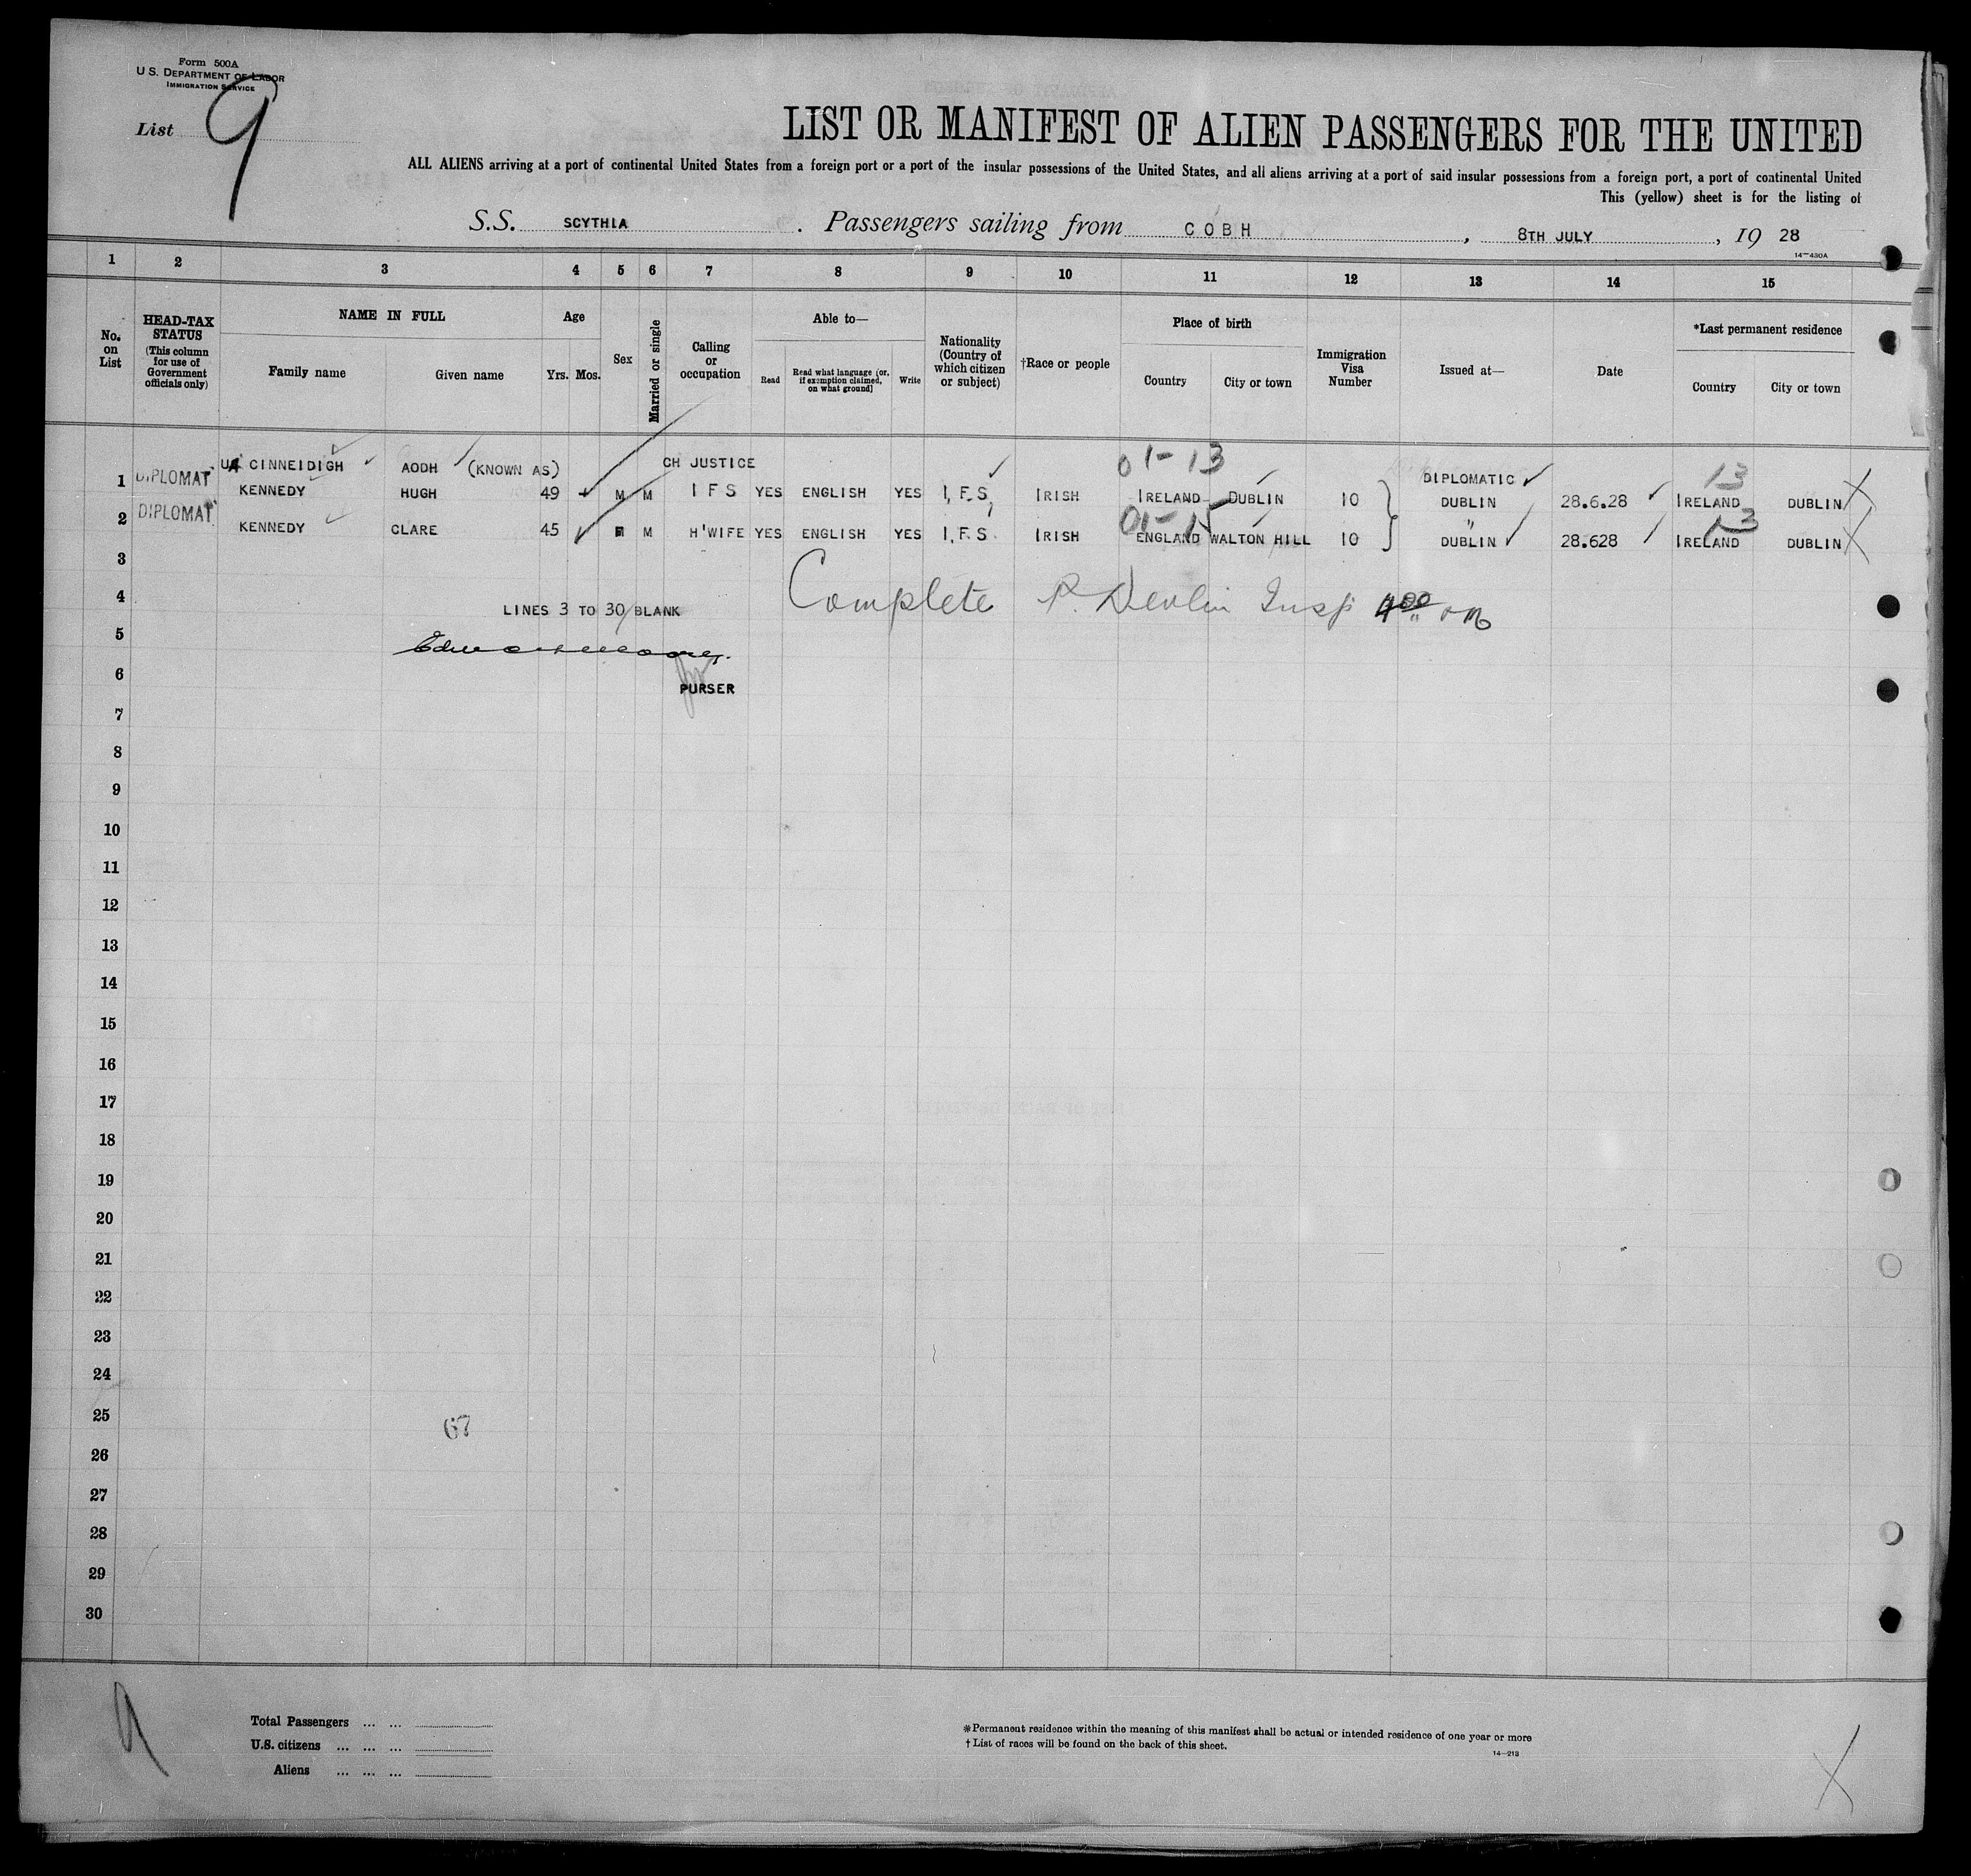 Form 500A
U.S. DEPARTMENT OF LABOR
IMMIGRATION SERVICE
List 9
LIST OR MANIFEST OF ALIEN PASSENGERS FOR THE UNITED
ALL ALIENS arriving at a port of continental United States from a foreign port or a port of the insular possessions of the United States, and all aliens arriving at a port of said insular possessions from a foreign port, a port of continental United
This (yellow) sheet is for the listing of
S.S. SCYTHIA . Passengers sailing from COBH , 8TH JULY , 19 28
14-430A
1 2 3 4 5 6 7 8 9 10 11 12 13 14 15
No. on List
HEAD-TAX STATUS (This column for use of Government officials only)
NAME IN FULL
Family name
Given name
Age
Yrs. Mos.
Sex
Married or single
Calling or occupation
Able to—
Read
Read what language [or, if exemption claimed, on what ground]
Write
Nationality (Country of which citizen or subject)
†Race or people
Place of birth
Country
City or town
Immigration Visa Number
Issued at—
Date
*Last permanent residence
Country
City or town
UA CINNEIDIGH AODH (KNOWN AS) CH JUSTICE 01-13 DIPLOMATIC 13
1 DIPLOMAT KENNEDY HUGH 49 M M I F S YES ENGLISH YES I.F.S. IRISH IRELAND DUBLIN 10 DUBLIN 28.6.28 IRELAND DUBLIN
01-15 " 13
2 DIPLOMAT KENNEDY CLARE 45 F M H'WIFE YES ENGLISH YES I.F.S. IRISH ENGLAND WALTON HILL 10 DUBLIN 28.628 IRELAND DUBLIN
3
4 LINES 3 TO 30 BLANK Complete P. Devlin Insp
5
6 PURSER
7
8
9
10
11
12
13
14
15
16
17
18
19
20
21
22
23
24
25 67
26
27
28
29
30
9
Total Passengers ... ...
U.S. citizens ... ... ...
Aliens ... ... ...
*Permanent residence within the meaning of this manifest shall be actual or intended residence of one year or more
†List of races will be found on the back of this sheet.
14-213